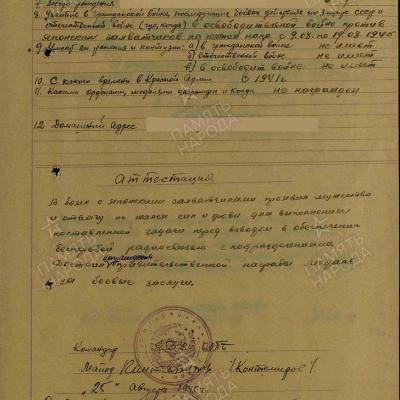 7. Место рождения
8. Участие в гражданской войне, последующих боевых действиях по защите СССР и
отечественной войне (где, когда) в освободительной войне против
японских захватчиков на южном напр. с 9.08. по 19.08.1945
9. Имеет ли ранения и контузии: а) в гражданской войне не имеет
б) отечественной войне не имеет
в) в освободит войне не имеет
10. С какого времени в Красной Армии с 1941 г
11. Какими орденами, медалями награжден и когда не награжден
12. Домашний адрес
Аттестация
В боях с японскими захватчиками проявил мужество
и отвагу не жалея сил и крови для выполнения
поставленной задачи перед взводом в обеспечении
бесперебой радиосвязью с подразделениями.
Достоин правительственной награды медаль
"За боевые заслуги.
Командир
Майор /Контемиров/.
"25" Августа 1945 г.
ПАМЯТЬ НАРОДА